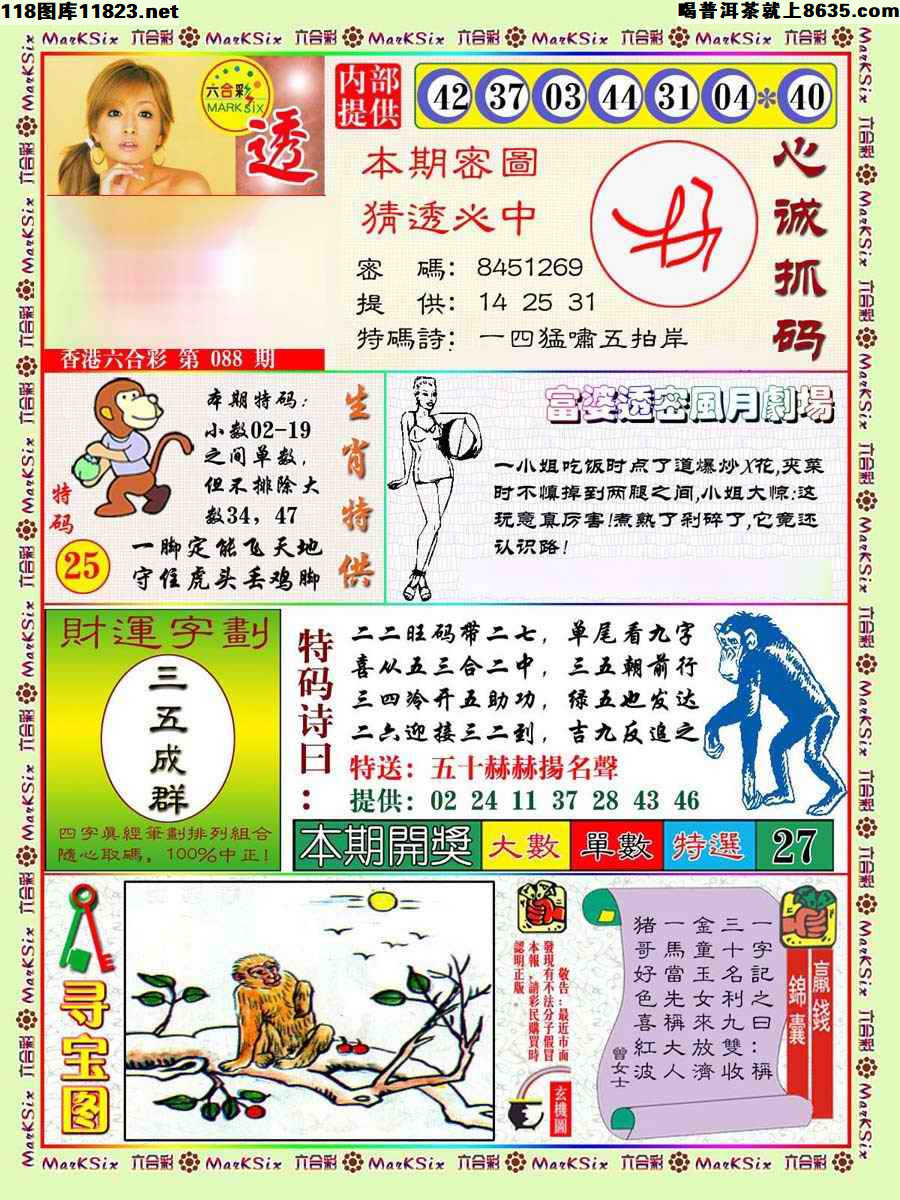 118图库11823.net
喝普洱茶就上8635.com
六合彩
MARK SIX
透
内部
提供
42 37 03 44 31 04*40
本期密圖
猜透必中
密 碼：8451269
提 供：14 25 31
特碼詩：一四猛嘯五拍岸
心诚抓码
香港六合彩 第 088 期
本期特码：
小数02-19
之间单数，
但不排除大
数34，47
一脚定能飞天地
守住虎头丢鸡脚
生肖特供
特码
25
富婆透密風月劇場
一小姐吃饭时点了道爆炒X花,夹菜
时不慎掉到两腿之间,小姐大惊:这
玩意真厉害!煮熟了剁碎了,它竟还
认识路!
財運字劃
三五成群
四字真經筆劃排列組合
隨心取碼，100%中正!
特码诗曰：
二二旺码带二七，单尾看九字
喜从五三合二中，三五朝前行
三四冷开五助功，绿五也发达
二六迎接三二到，吉九反追之
特送：五十赫赫揚名聲
提供：02 24 11 37 28 43 46
本期開獎 大數 單數 特選 27
寻宝图
敬告:最近市面
發現有不法分子假冒
本報,請彩民購買時
認明正版。
玄機圖
贏錢
錦囊
一字記之曰：稱
三十名利九雙收
金童玉女來放濟
一馬當先稱大人
猪哥好色喜紅波
曾女士
MarKSix 六合彩 MarKSix 六合彩 MarKSix 六合彩 MarKSix 六合彩 MarKSix 六合彩